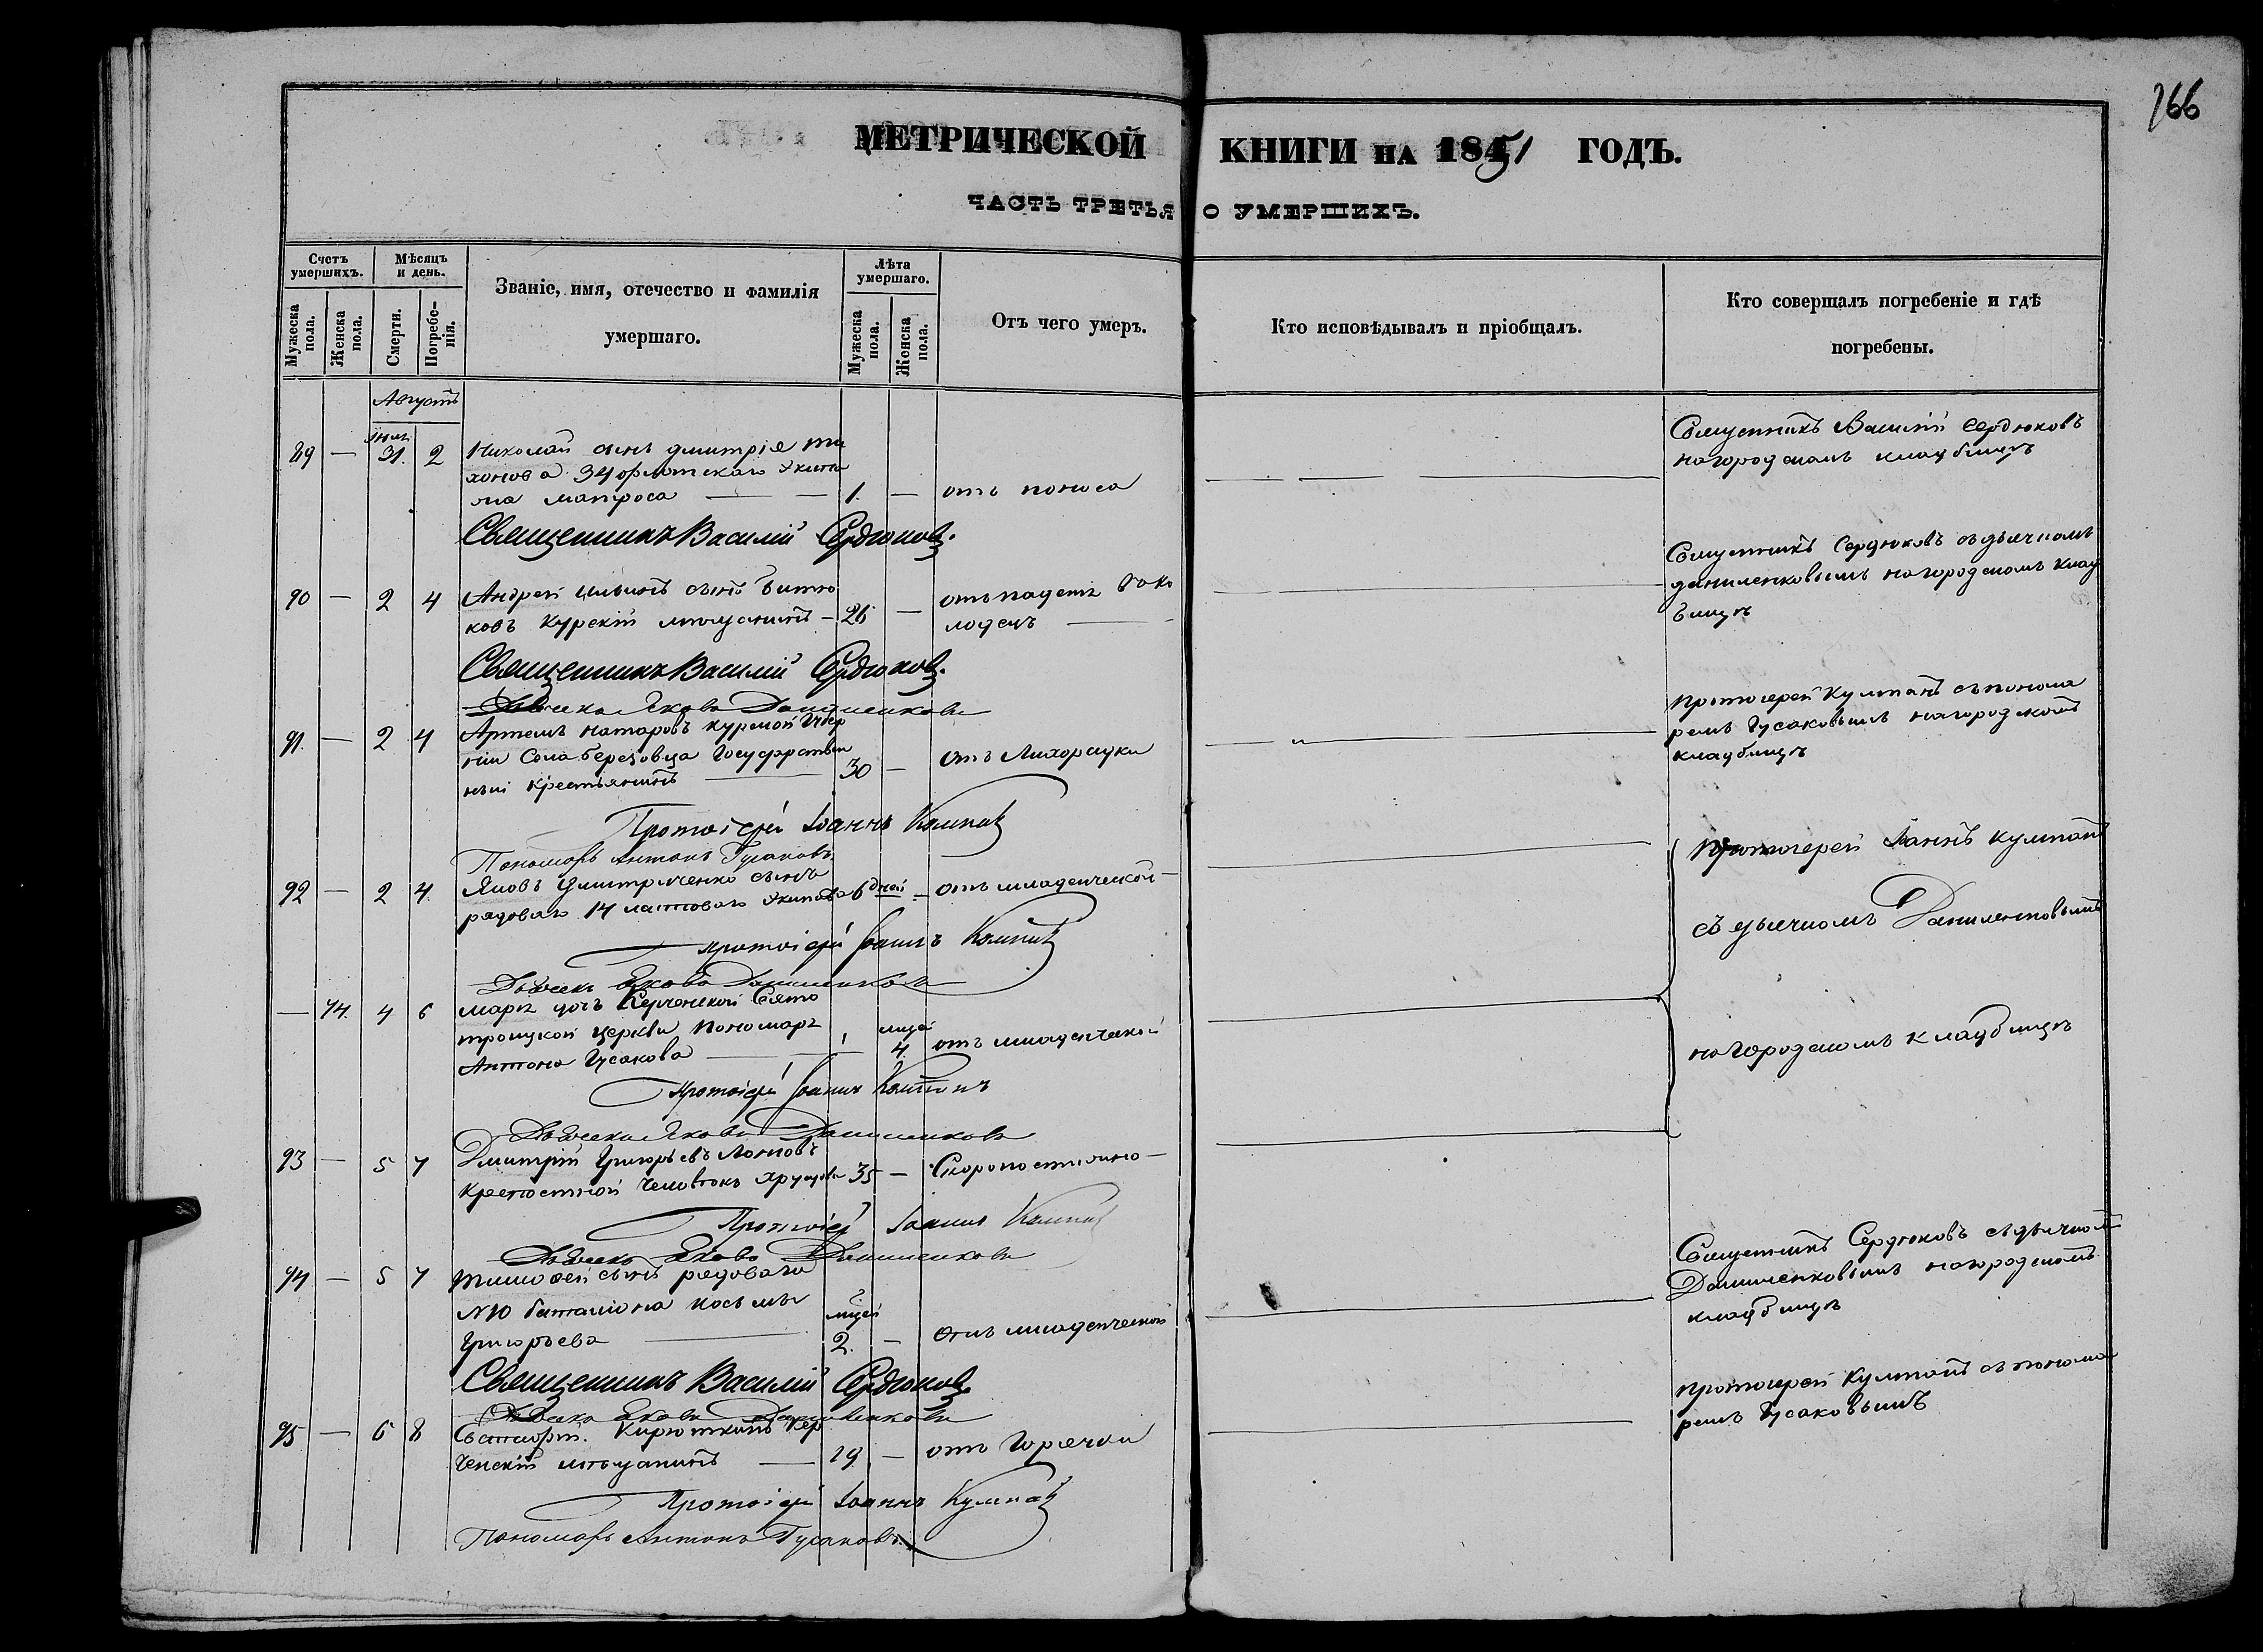 766
МЕТРИЧЕСКОЙ КНИГИ НА 1851 ГОДЪ.
ЧАСТЬ ТРЕТЬЯ О УМЕРШИХЪ.
Счетъ умершихъ.
Мужеска пола.
Женска пола.
Мѣсяцъ и день.
Смерти.
Погребенія.
Званіе, имя, отечество и фамилія
умершаго.
Лѣта умершаго.
Мужеска пола.
Женска пола.
Отъ чего умеръ.
Кто исповѣдывалъ и пріобщалъ.
Кто совершалъ погребеніе и гдѣ
погребены.
Августъ
89 — 31. 2 Николай сынъ Дмитрія Ти
хонова 34 флотскаго Экипа
жа матроса — 1. — отъ поноса
Священникъ Василій Сердюковъ
на городскомъ кладбищѣ
Священникъ Василій Сердюковъ.
90 — 2 4 Андрей сынъ Битю
ковъ Курскій мѣщанинъ — 26 —
Священникъ Сердюковъ съ дьячкомъ
Даниленковымъ на городскомъ клад
бищѣ
Священникъ Василій Сердюковъ.
Дьячекъ Яковъ Даниленковъ
91. — 2 4 Артемъ Натаровъ Курской Губер
ніи Села Березовца Государствен
ный крестьянинъ — 30 — отъ Лихорадки
Протоіерей Кумпанъ съ понома
ремъ Гусаковымъ на городскомъ
кладбищѣ
Протоіерей Іоаннъ Кумпанъ
Пономарь Антонъ Гусаковъ
92 — 2 4. Яковъ сынъ
рядоваго 14 ластоваго Экипажа 6 дней — отъ младенческой
Протоіерей Іоаннъ Кумпанъ
съ дьячкомъ Даниленковымъ
Протоіерей Іоаннъ Кумпанъ
Дьячекъ Яковъ Даниленковъ
— 74. 4 6 Марія дочь Керченской Свято
троицкой церкви пономаря
Антона Гусакова — 4. отъ младенческой
на городскомъ кладбищѣ
Протоіерей Іоаннъ Кумпанъ
Дьячекъ Яковъ Даниленковъ
93 — 5 7 Дмитрій Григорьевъ
крепостной человѣкъ 35 — Скоропостижно —
Протоіерей Іоаннъ Кумпанъ
Дьячекъ Яковъ Даниленковъ
94 — 5 7 Тимофей сынъ рядоваго
баталіона Косьмы
Григорьева — 2. — отъ младенческой
Священникъ Сердюковъ съ дьячкомъ
Даниленковымъ на городскомъ
кладбищѣ
Священникъ Василій Сердюковъ.
Дьячекъ Яковъ Даниленковъ
95 — 6 8 Кирюткинъ Кер
ченскій мѣщанинъ — 19. — отъ Горячки
Протоіерей Кумпанъ съ понома
ремъ Гусаковымъ
Протоіерей Іоаннъ Кумпанъ
Пономарь Антонъ Гусаковъ.